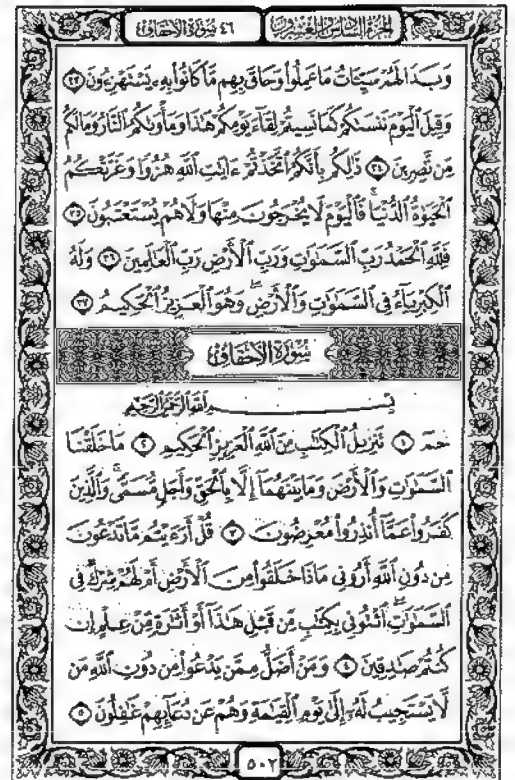 الجزء السادس والعشرون
٤٦ سورة الأحقاف
وَبَدَا لَهُمْ سَيِّـَٔاتُ مَا عَمِلُوا۟ وَحَاقَ بِهِم مَّا كَانُوا۟ بِهِۦ يَسْتَهْزِءُونَ ٣٣
وَقِيلَ ٱلْيَوْمَ نَنسَىٰكُمْ كَمَا نَسِيتُمْ لِقَآءَ يَوْمِكُمْ هَـٰذَا وَمَأْوَىٰكُمُ ٱلنَّارُ وَمَا لَكُم
مِّن نَّـٰصِرِينَ ٣٤ ذَٰلِكُم بِأَنَّكُمُ ٱتَّخَذْتُمْ ءَايَـٰتِ ٱللَّهِ هُزُوًا وَغَرَّتْكُمُ
ٱلْحَيَوٰةُ ٱلدُّنْيَا ۚ فَٱلْيَوْمَ لَا يُخْرَجُونَ مِنْهَا وَلَا هُمْ يُسْتَعْتَبُونَ ٣٥
فَلِلَّهِ ٱلْحَمْدُ رَبِّ ٱلسَّمَـٰوَٰتِ وَرَبِّ ٱلْأَرْضِ رَبِّ ٱلْعَـٰلَمِينَ ٣٦ وَلَهُ
ٱلْكِبْرِيَآءُ فِى ٱلسَّمَـٰوَٰتِ وَٱلْأَرْضِ ۖ وَهُوَ ٱلْعَزِيزُ ٱلْحَكِيمُ ٣٧
سُورَةُ الأَحْقَافِ
بِسْمِ ٱللَّهِ ٱلرَّحْمَـٰنِ ٱلرَّحِيمِ
حمٓ ١ تَنزِيلُ ٱلْكِتَـٰبِ مِنَ ٱللَّهِ ٱلْعَزِيزِ ٱلْحَكِيمِ ٢ مَا خَلَقْنَا
ٱلسَّمَـٰوَٰتِ وَٱلْأَرْضَ وَمَا بَيْنَهُمَآ إِلَّا بِٱلْحَقِّ وَأَجَلٍ مُّسَمًّى ۚ وَٱلَّذِينَ
كَفَرُوا۟ عَمَّآ أُنذِرُوا۟ مُعْرِضُونَ ٣ قُلْ أَرَءَيْتُم مَّا تَدْعُونَ
مِن دُونِ ٱللَّهِ أَرُونِى مَاذَا خَلَقُوا۟ مِنَ ٱلْأَرْضِ أَمْ لَهُمْ شِرْكٌ فِى
ٱلسَّمَـٰوَٰتِ ۖ ٱئْتُونِى بِكِتَـٰبٍ مِّن قَبْلِ هَـٰذَآ أَوْ أَثَـٰرَةٍ مِّنْ عِلْمٍ إِن
كُنتُمْ صَـٰدِقِينَ ٤ وَمَنْ أَضَلُّ مِمَّن يَدْعُوا۟ مِن دُونِ ٱللَّهِ مَن
لَّا يَسْتَجِيبُ لَهُۥٓ إِلَىٰ يَوْمِ ٱلْقِيَـٰمَةِ وَهُمْ عَن دُعَآئِهِمْ غَـٰفِلُونَ ٥
٥٠٢